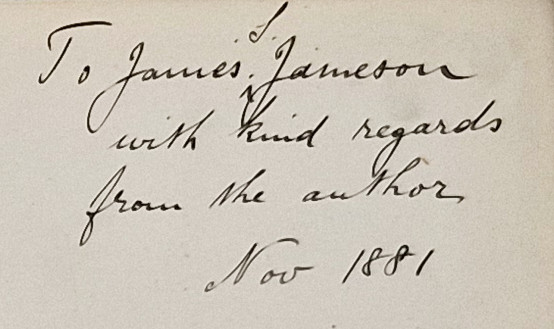 To James S. Jameson
with kind regards
from the author
Nov 1881